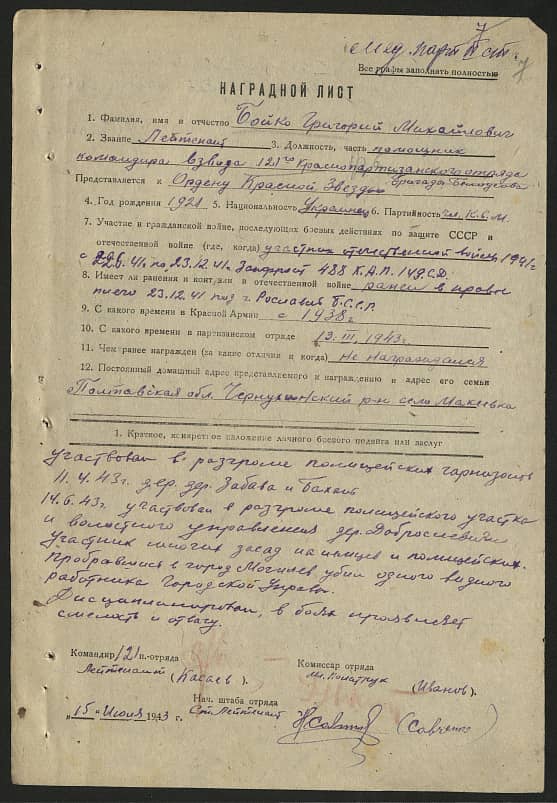 7
Мед. парт II ст.
7
Все графы заполнять полностью
НАГРАДНОЙ ЛИСТ
1. Фамилия, имя и отчество Бойко Григорий Михайлович
2. Звание Лейтенант 3. Должность, часть помощник
командира взвода 121го Краснопартизанского отряда
Представляется к Ордену Красной Звезды бригады
4. Год рождения 1921 5. Национальность Украинец 6. Партийность чл. К.С.М.
7. Участие в гражданской войне, последующих боевых действиях по защите СССР и
отечественной войне (где, когда) участник отечественной войны 1941г
с 22.6.41. по 23.12.41. Запфронт 488 К.А.П. 149 С.Д.
8. Имеет ли ранения и контузии в отечественной войне ранен в правое
плечо 23.12.41 под г. Рославль Б.С.С.Р.
9. С какого времени в Красной Армии с 1938г
10. С какого времени в партизанском отряде 13. III. 1943г.
11. Чем ранее награжден (за какие отличия и когда) не награждался
12. Постоянный домашний адрес представляемого к награждению и адрес его семьи
Полтавская обл. Чернухинский р-н село Макеевка
1. Краткое, конкретное изложение личного боевого подвига или заслуг
участвовал в разгроме полицейских гарнизонов
11.4.43г. дер. дер. Забава и
14.6.43г. участвовал в разгроме полицейского участка
и волостного управления дер. Добросневичи
Участник многих засад на немцев и полицейских.
Пробравшись в город Могилев убил одного видного
работника Городской Управы.
Дисциплинирован, в боях проявляет
смелость и отвагу.
Командир 121 п.-отряда
Лейтенант (Касаев)
Комиссар отряда
мл. политрук (Иванов).
Нач. штаба отряда
Ст. Лейтенант (Савченко)
„15" Июля 1943 г.